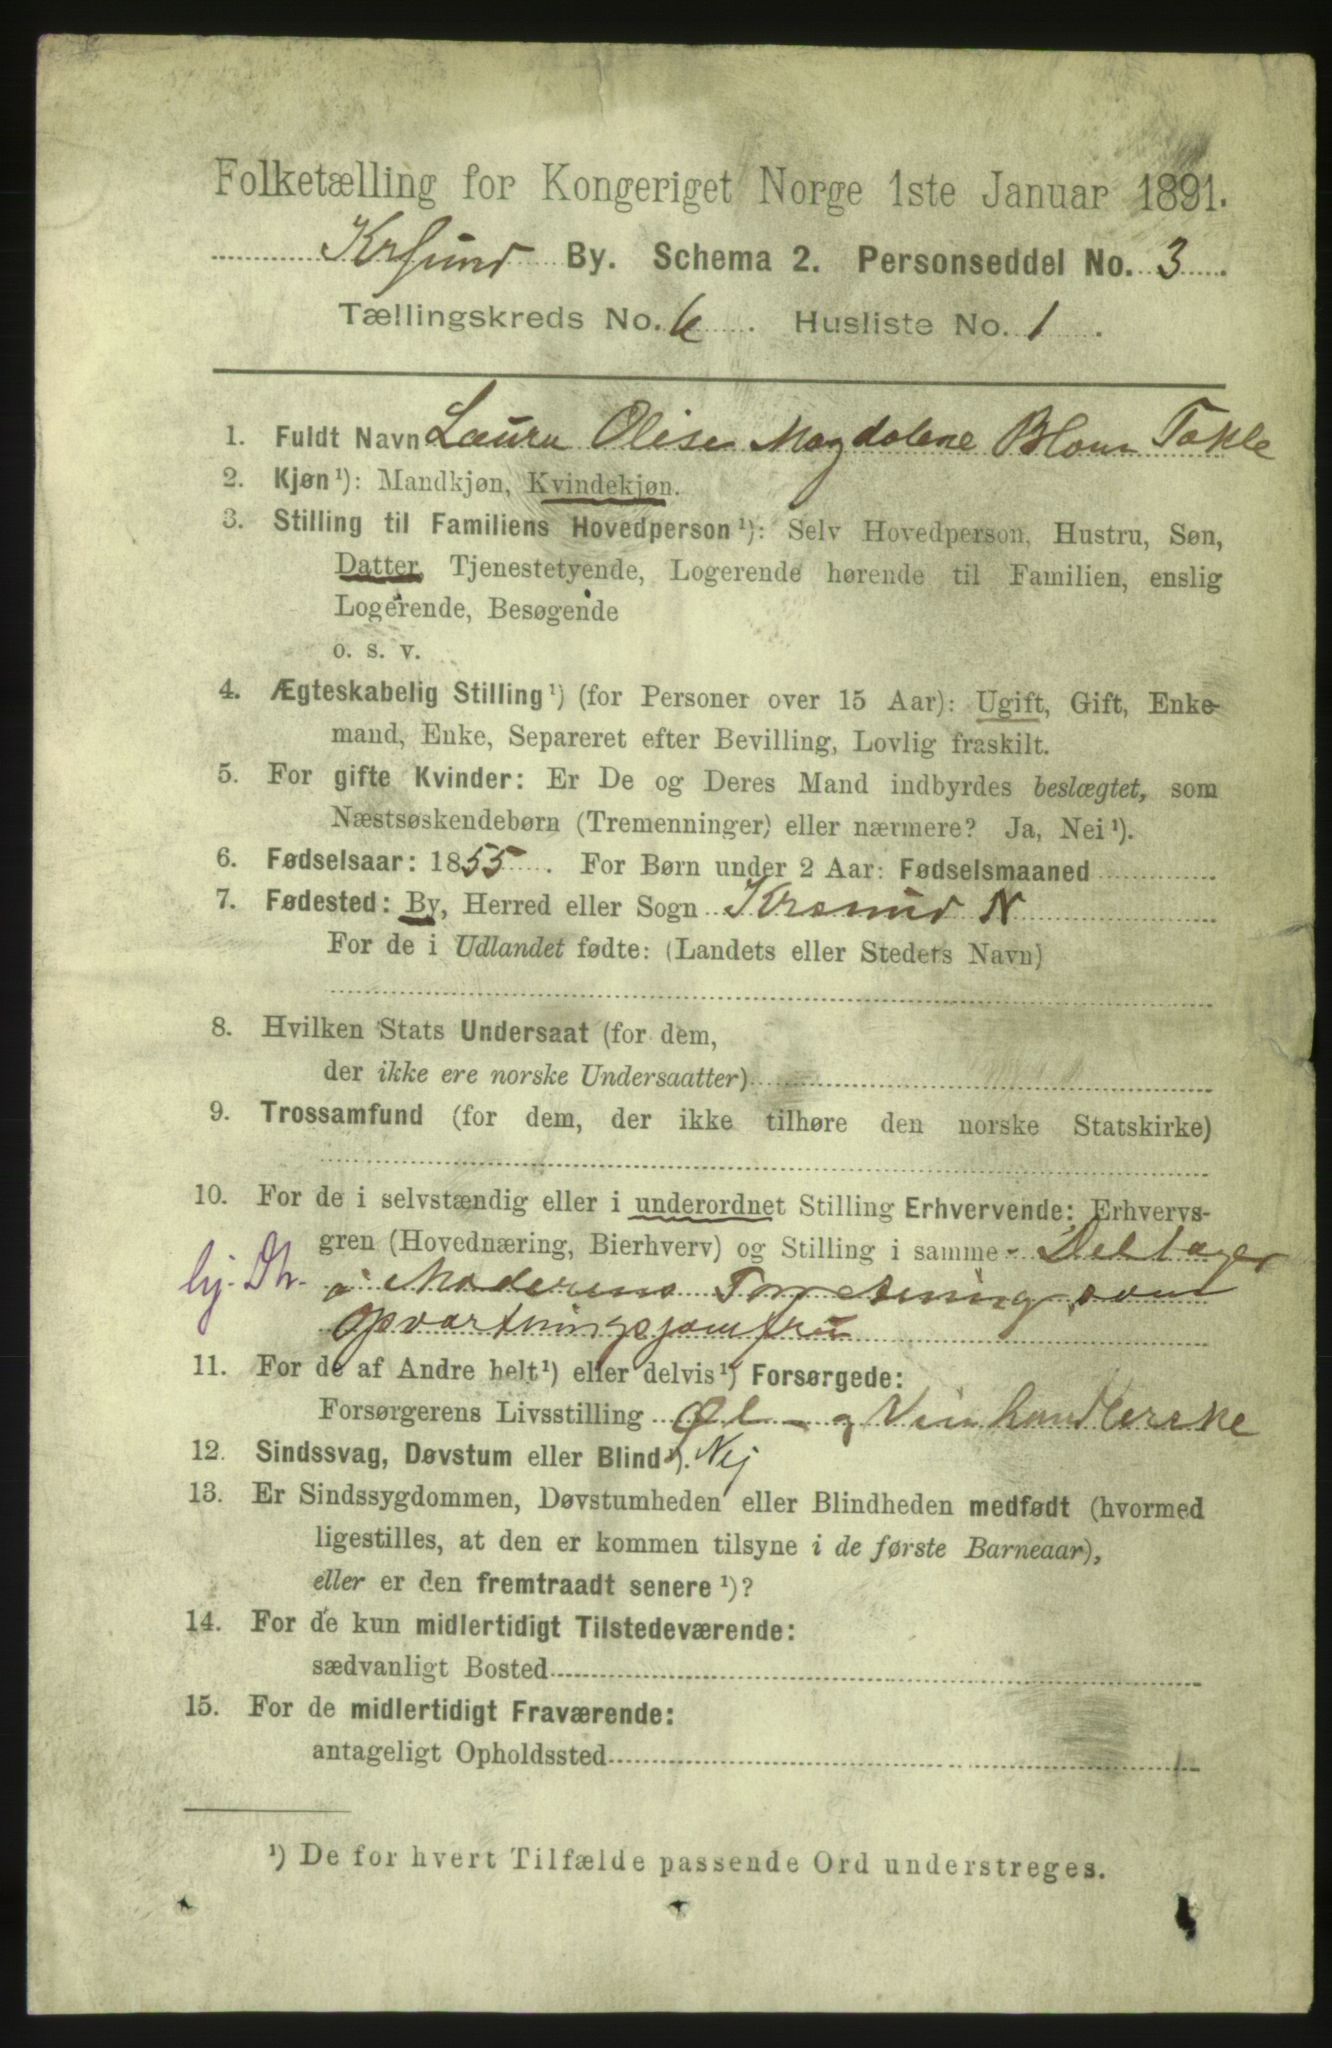 Folketælling for Kongeriget Norge 1ste Januar 1891.
Krsund By. Schema 2. Personseddel No. 3
Tællingskreds No. 6. Husliste No. 1.
1. Fuldt Navn Laura Olise Magdalene Blom Takle
2. Kjøn¹): Mandkjøn, Kvindekjøn.
3. Stilling til Familiens Hovedperson¹): Selv Hovedperson, Hustru, Søn,
Datter, Tjenestetyende, Logerende hørende til Familien, enslig
Logerende, Besøgende
o. s. v.
4. Ægteskabelig Stilling¹) (for Personer over 15 Aar): Ugift, Gift, Enke-
mand, Enke, Separeret efter Bevilling, Lovlig fraskilt.
5. For gifte Kvinder: Er De og Deres Mand indbyrdes beslægtet, som
Næstsøskendebørn (Tremenninger) eller nærmere? Ja, Nei¹).
6. Fødselsaar: 1855. For Børn under 2 Aar: Fødselsmaaned
7. Fødested: By, Herred eller Sogn Krsund N
For de i Udlandet fødte: (Landets eller Stedets Navn)
8. Hvilken Stats Undersaat (for dem,
der ikke ere norske Undersaatter)
9. Trossamfund (for dem, der ikke tilhøre den norske Statskirke)
10. For de i selvstændig eller i underordnet Stilling Erhvervende: Erhvervs-
gren (Hovednæring, Bierhverv) og Stilling i samme - Deltager
i Moderens Forretning som
Opvartningsjomfru
11. For de af Andre helt¹) eller delvis¹) Forsørgede:
Forsørgerens Livsstilling Øl- og Vinhandlerske
12. Sindssvag, Døvstum eller Blind¹). Nej
13. Er Sindssygdommen, Døvstumheden eller Blindheden medfødt (hvormed
ligestilles, at den er kommen tilsyne i de første Barneaar),
eller er den fremtraadt senere¹)?
14. For de kun midlertidigt Tilstedeværende:
sædvanligt Bosted
15. For de midlertidigt Fraværende:
antageligt Opholdssted
¹) De for hvert Tilfælde passende Ord understreges.